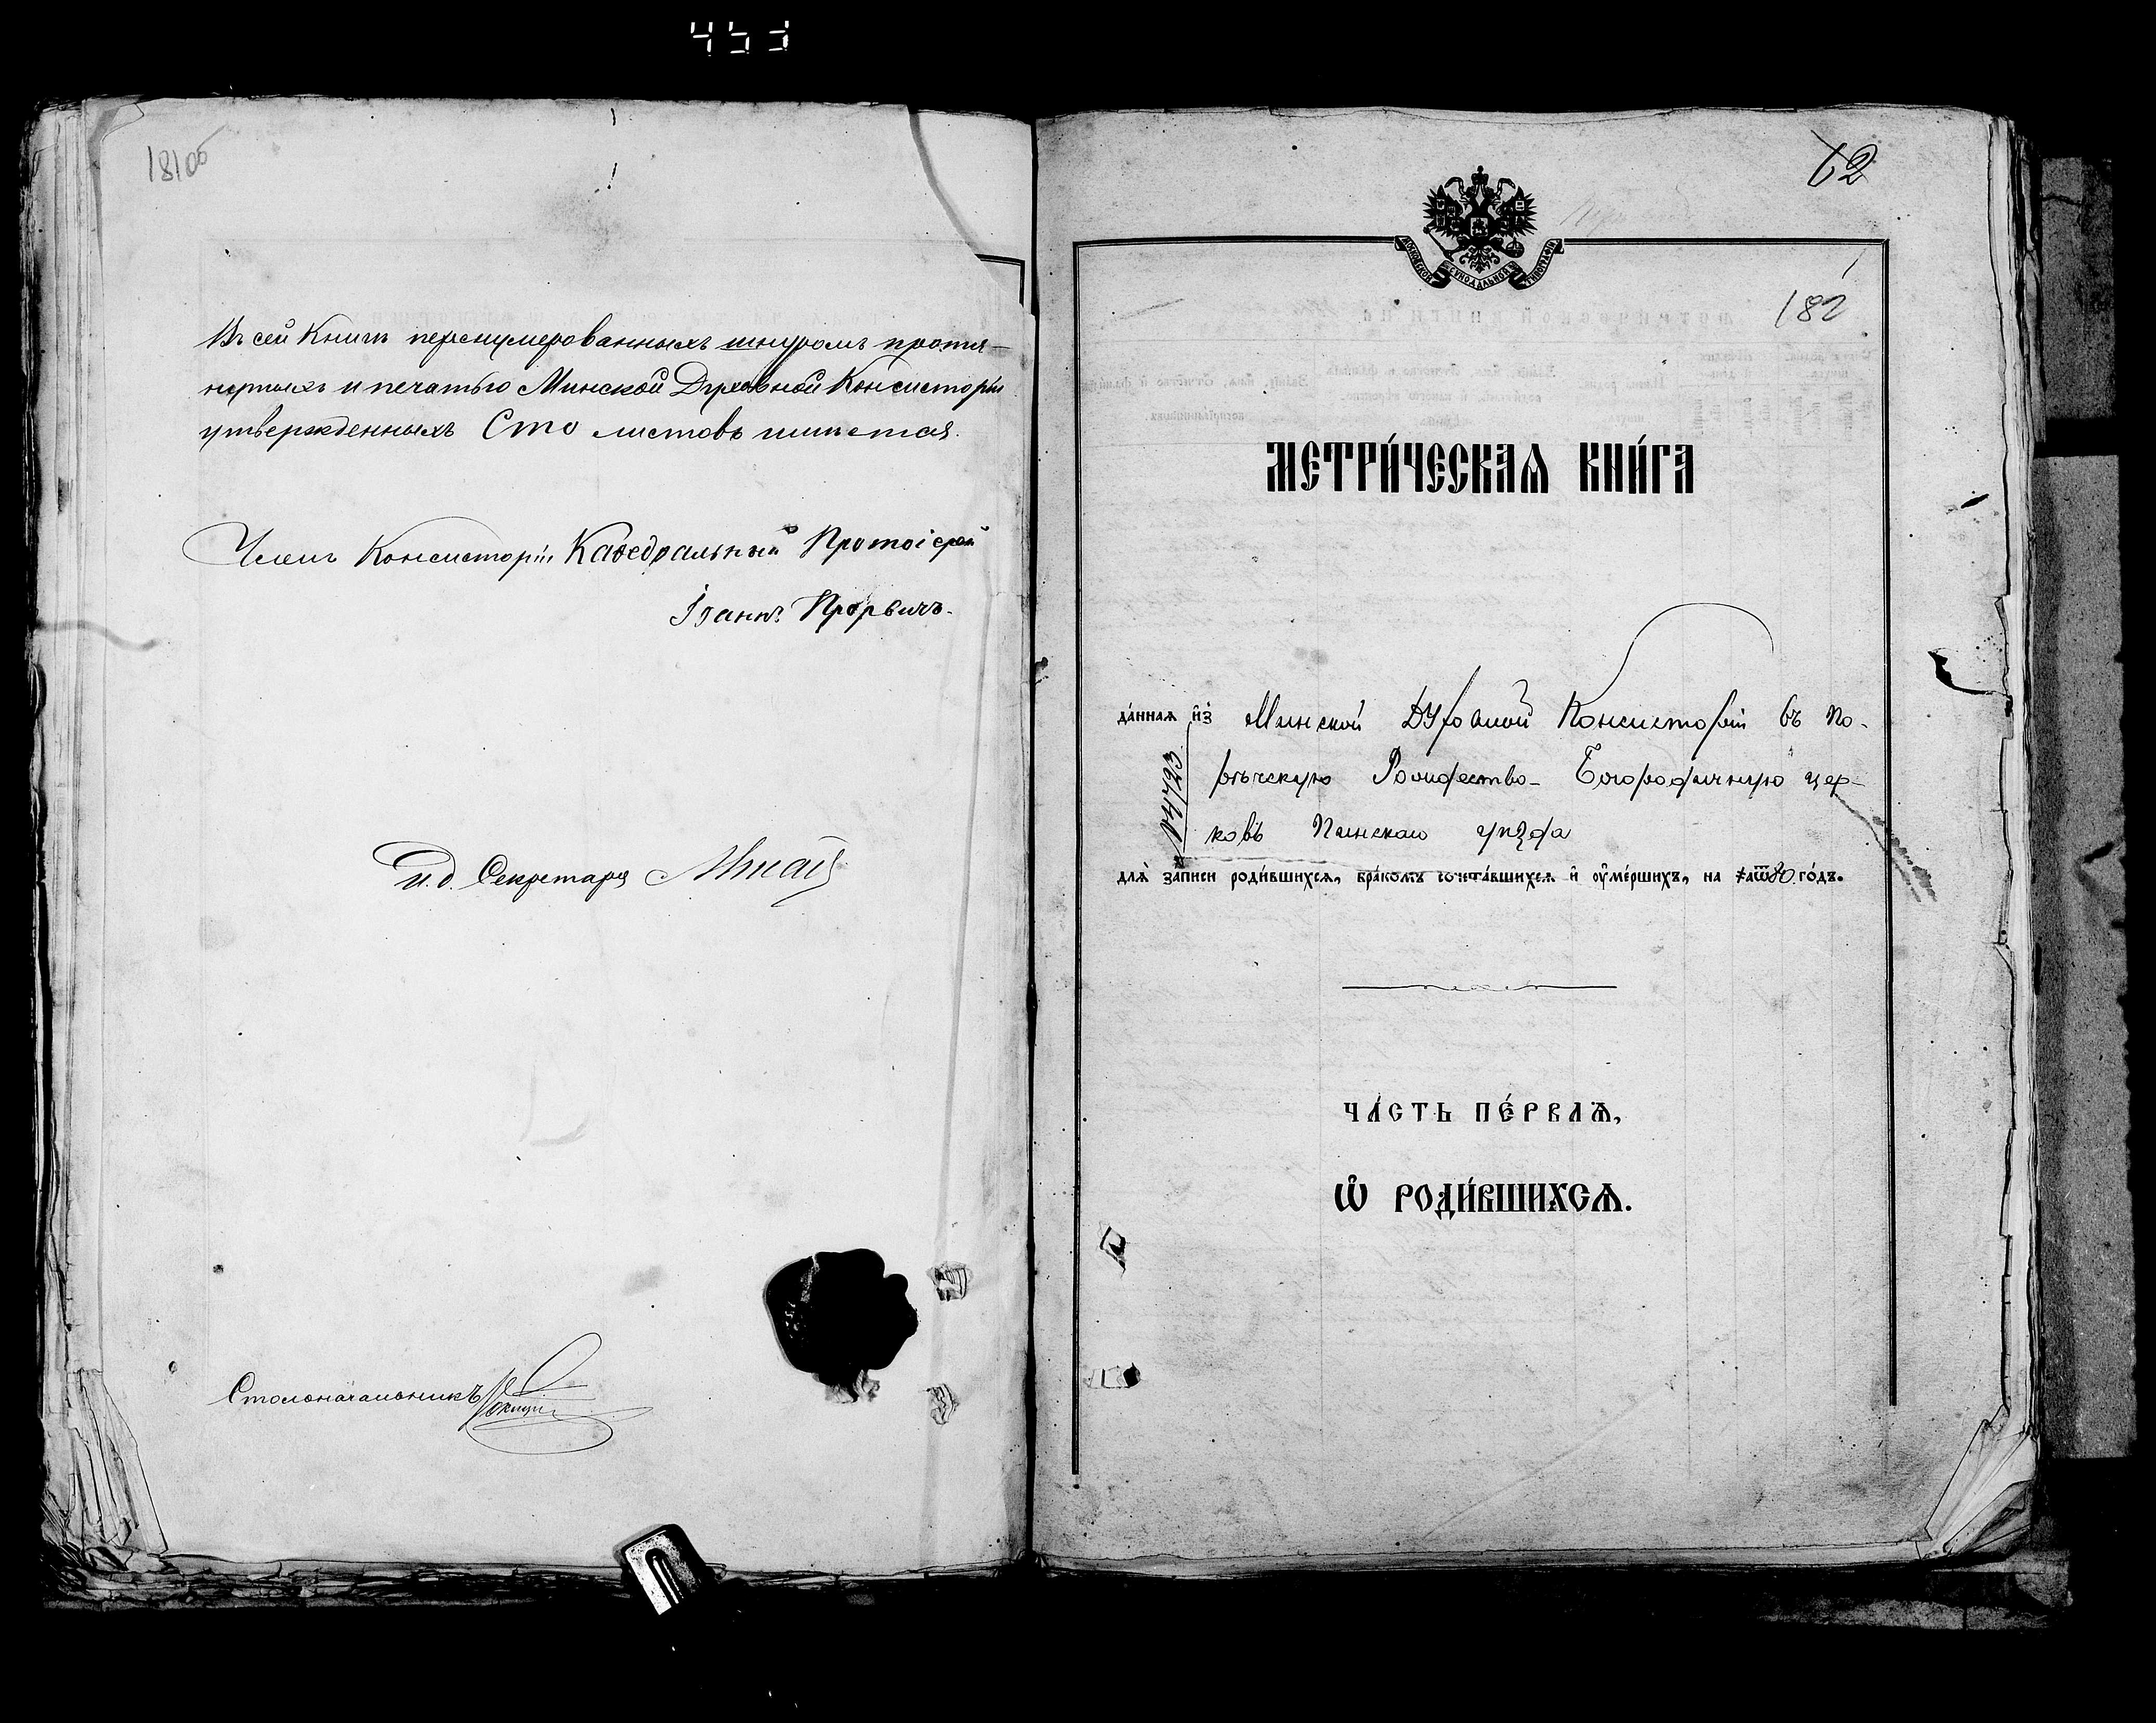 453
181об
Въ сей Книгѣ перенумерованныхъ шнуромъ протя-
нутыхъ и печатью Минской Духовной Консисторіи
утвержденныхъ Сто листовъ имѣется.
Членъ Консисторіи Каѳедральный Протоіерей
Іоаннъ Прорвичъ.
И. д. Секретаря
Столоначальникъ
62
МОСКОВСКОЙ СѴНОДАЛЬНОЙ ТИПОГРАФІИ
182
МЕТРИ́ЧЕСКАѦ КНИ́ГА
да́ннаѧ и҆з̾ Минской Духовной Консисторіи въ По-
рѣчскую Рождество-Богородичную цер-
ковь Пинскаго уѣзда
№ 4793
длѧ̀ за́писи роди́вшихсѧ, бра́комъ сочета́вшихсѧ и҆ ᲂу҆ме́ршихъ, на ҂аѿ го́дъ.
ЧА́СТЬ ПЕ́РВАѦ,
Ѽ РОДИ́ВШИХСѦ.